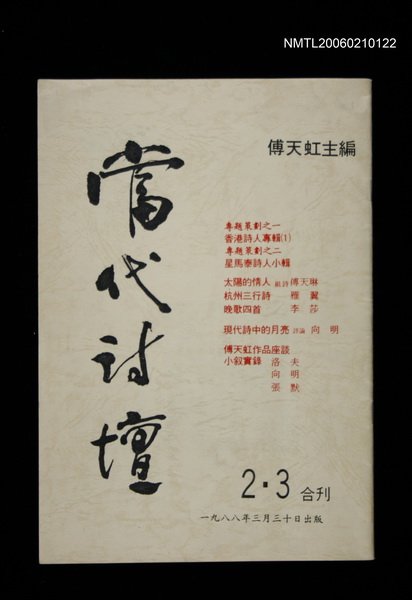 NMTL20060210122
傅天虹主編
當代詩壇
專題策劃之一
香港詩人專輯(1)
專題策劃之二
星馬泰詩人小輯
太陽的情人 組詩 傅天琳
杭州三行詩 雁翼
晚歌四首 李莎
現代詩中的月亮 評論 向明
傅天虹作品座談
小叙實錄 洛夫
向明
張默
2·3 合刊
一九八八年三月三十日出版